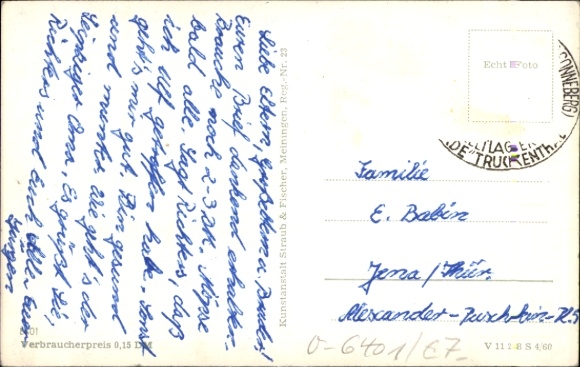 Liebe Eltern, Großeltern u. Bruder!
Euren Brief dankend erhalten.
Brauche noch 2-3 DM. Möpse
bald alle. Sagt Richters, daß
ich Ulf getroffen habe. Sonst
geht's mir gut. Bin gesund
und munter. Wie geht's der
Leipziger Oma. Es grüßt Sie,
Richters und Euch Alle Euer
Jürgen
Kunstanstalt Straub & Fischer, Meiningen, Reg.-Nr. 23
Echt Foto
(SONNEBERG)
ZELTLAGER
TRUCKENTHAL
Familie
E. Babin
Jena/Thür.
Alexander-Puschkin-
Verbraucherpreis 0,15 DM
0-6401/E7-
V 11 28 S 4/60